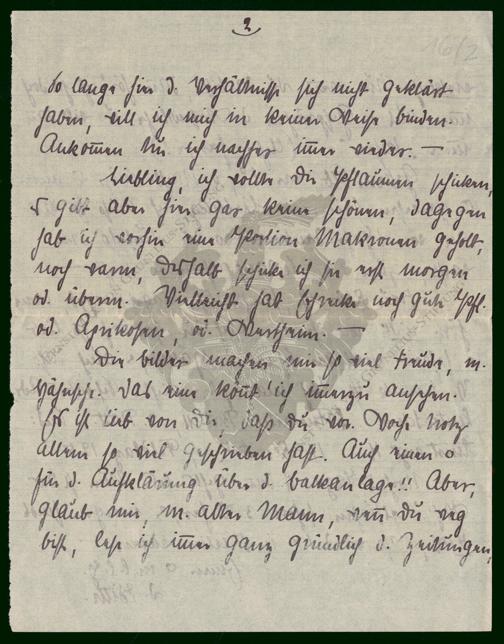 2
16/2
So lange hier d. Verhältnisse sich nicht geklärt
haben, will ich mich in keiner Weise binden.
Ankom̄en tu ich nachher im̄er wieder. —
Liebling, ich wollte Dir Pflaumen schicken,
es gibt aber hier gar keine schönen, dagegen
hab ich vorhin eine Portion Makronen geholt,
noch warm, deshalb schicke ich sie erst morgen
od. überm. Vielleicht hat noch gute Pfl.
od. Aprikosen, od. Wertheim. —
Die Bilder machen mir so viel Freude, m.
Das eine kön̄t' ich im̄erzu ansehen.
Es ist lieb von Dir, daß Du vor. Woche trotz
allem so viel geschrieben hast. Auch einen o
für d. Aufklärung über d. Balkanlage!! Aber,
glaub mir, m. alter Mann, wen̄ Du weg
bist, lese ich im̄er ganz gründlich d. Zeitungen,